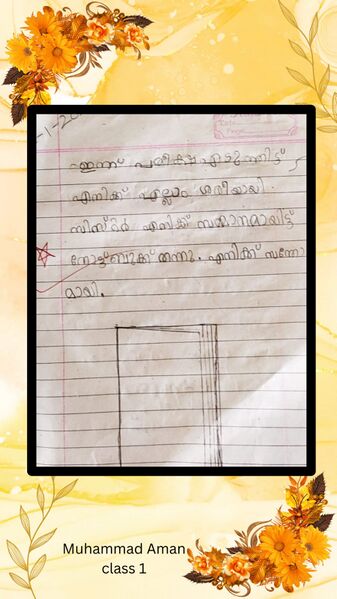 -1-20
ഇന്ന് പരീക്ഷ എഴുതീട്ട്
എനിക്ക് എല്ലാം ശരിയായി
സിസ്റ്റർ എനിക്ക് സമ്മാനമായിട്ട്
നോട്ട്ബുക്ക് തന്നു. എനിക്ക് സന്തോ
മായി.
Muhammad Aman
class 1